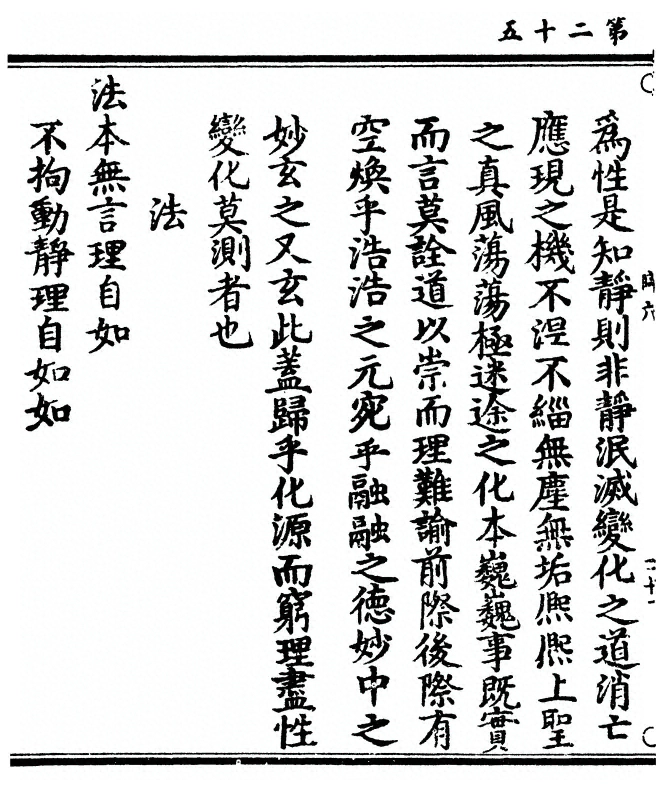 第二十五
為性是知靜則非靜泯滅變化之道消亡
應現之機不涅不緇無塵無垢熈熈上聖
之真風蕩蕩極迷途之化本巍巍事既實
而言莫詮道以崇而理難諭前際後際有
空煥乎浩浩之元宛乎融融之德妙中之
妙玄之又玄此蓋歸乎化源而窮理盡性
變化莫測者也
法
法本無言理自如
不拘動靜理自如如